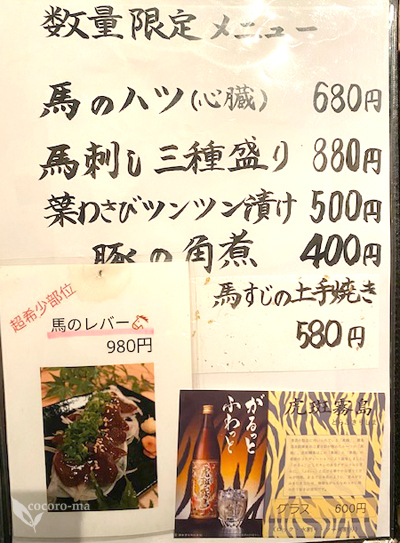 数量限定メニュー
馬のハツ(心臓) 680円
馬刺し三種盛り 880円
葉わさびツンツン漬け 500円
豚の角煮 400円
馬すじの土手焼き
580円
超希少部位
馬のレバー
980円
がるっと
ふわっと
虎斑霧島
グラス 600円
cocoro-ma